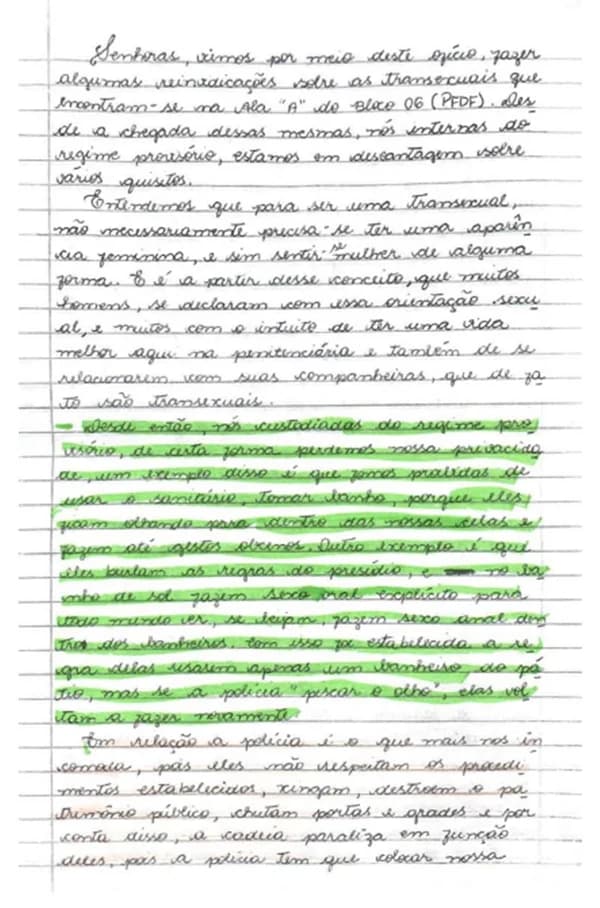 Senhoras, vimos por meio deste ofício, fazer
algumas reinvidicações sobre as transexuais que
encontram-se na Ala "A" do Bloco 06 (PFDF). Des
de a chegada dessas mesmas, nós internas do
regime provisório, estamos em desvantagem sobre
vários quisitos.
Entendemos que para ser uma transexual,
não necessariamente precisa-se ter uma aparên
cia feminina, e sim sentir-se mulher de alguma
forma. E é a partir desse conceito, que muitos
homens, se declaram com essa orientação sexu
al, e muitos com o intuito de ter uma vida
melhor aqui na penitenciária e também de se
relacionarem com suas companheiras, que de fa
to são transexuais.
- Desde então, nós custodiadas do regime pro
visório, de certa forma perdemos nossa privacida
de, um exemplo disso é que fomos proibidas de
usar o sanitário, tomar banho, porque eles
ficam olhando para dentro das nossas celas e
fazem até gestos obcenos. Outro exemplo é que
eles burlam as regras do presídio, e no ba
nho de sol fazem sexo oral explícito para
todo mundo ver, se beijam, fazem sexo anal den
tro dos banheiros. Com isso foi estabelecida a re
gra delas usarem apenas um banheiro do pá
tio, mas se a polícia "piscar o olho", elas vol
tam a fazer novamente.
Em relação a polícia é o que mais nos in
comoda, pois eles não respeitam os procedi
mentos estabelecidos, xingam, destroem o pa
trimônio público, chutam portas e grades e por
conta disso, a cadeia paraliza em função
deles, pois a polícia tem que colocar nossa